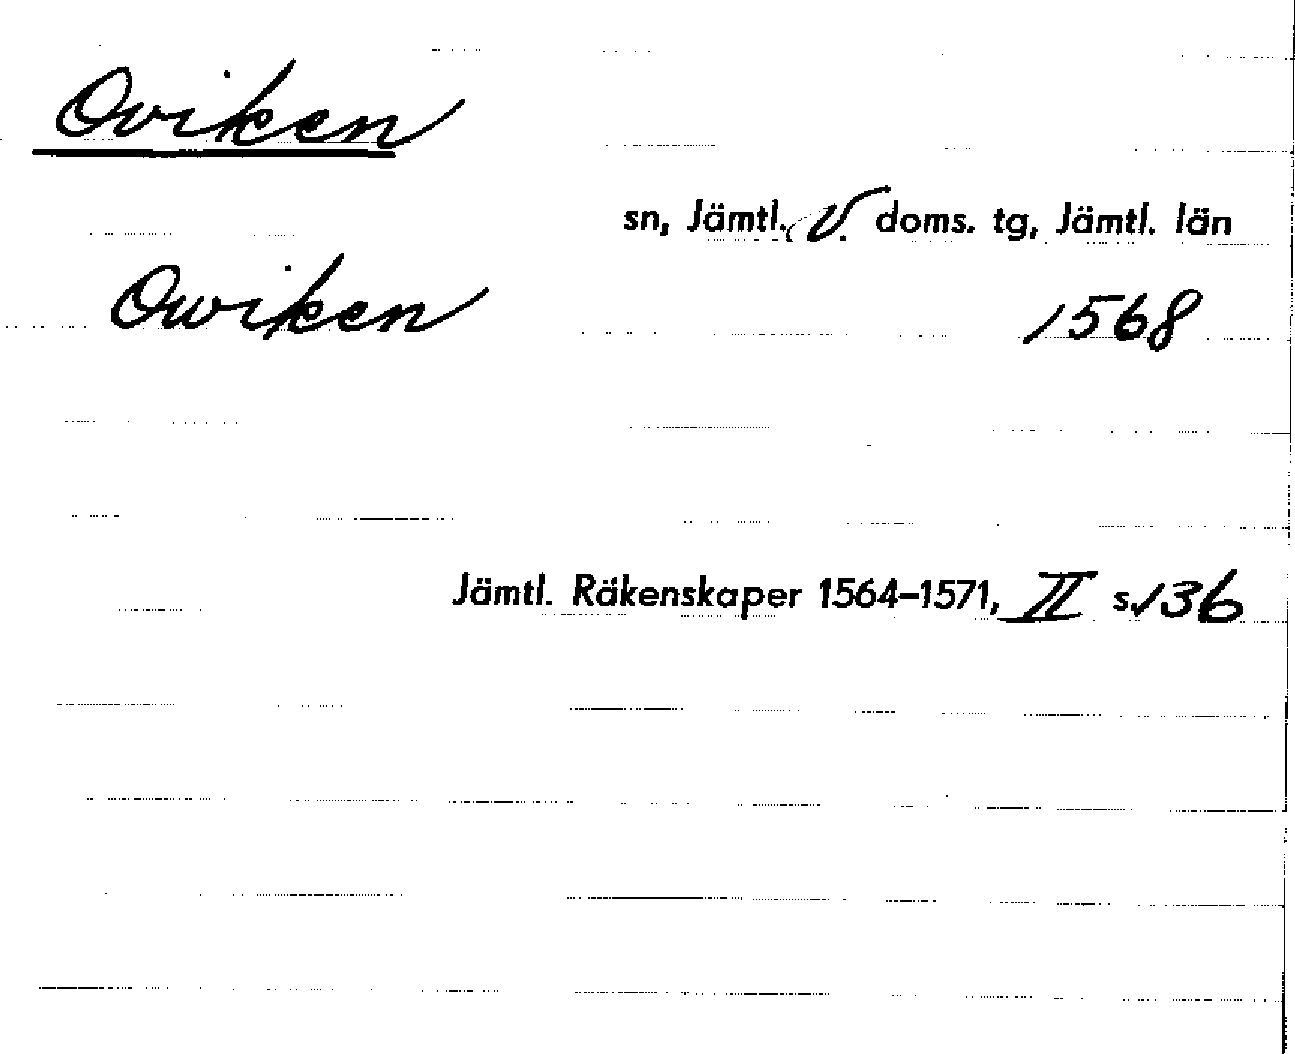 Oviken
sn, Jämtl. V. doms. tg, Jämtl. län
Owiken 1568
Jämtl. Räkenskaper 1564–1571, II s. 136